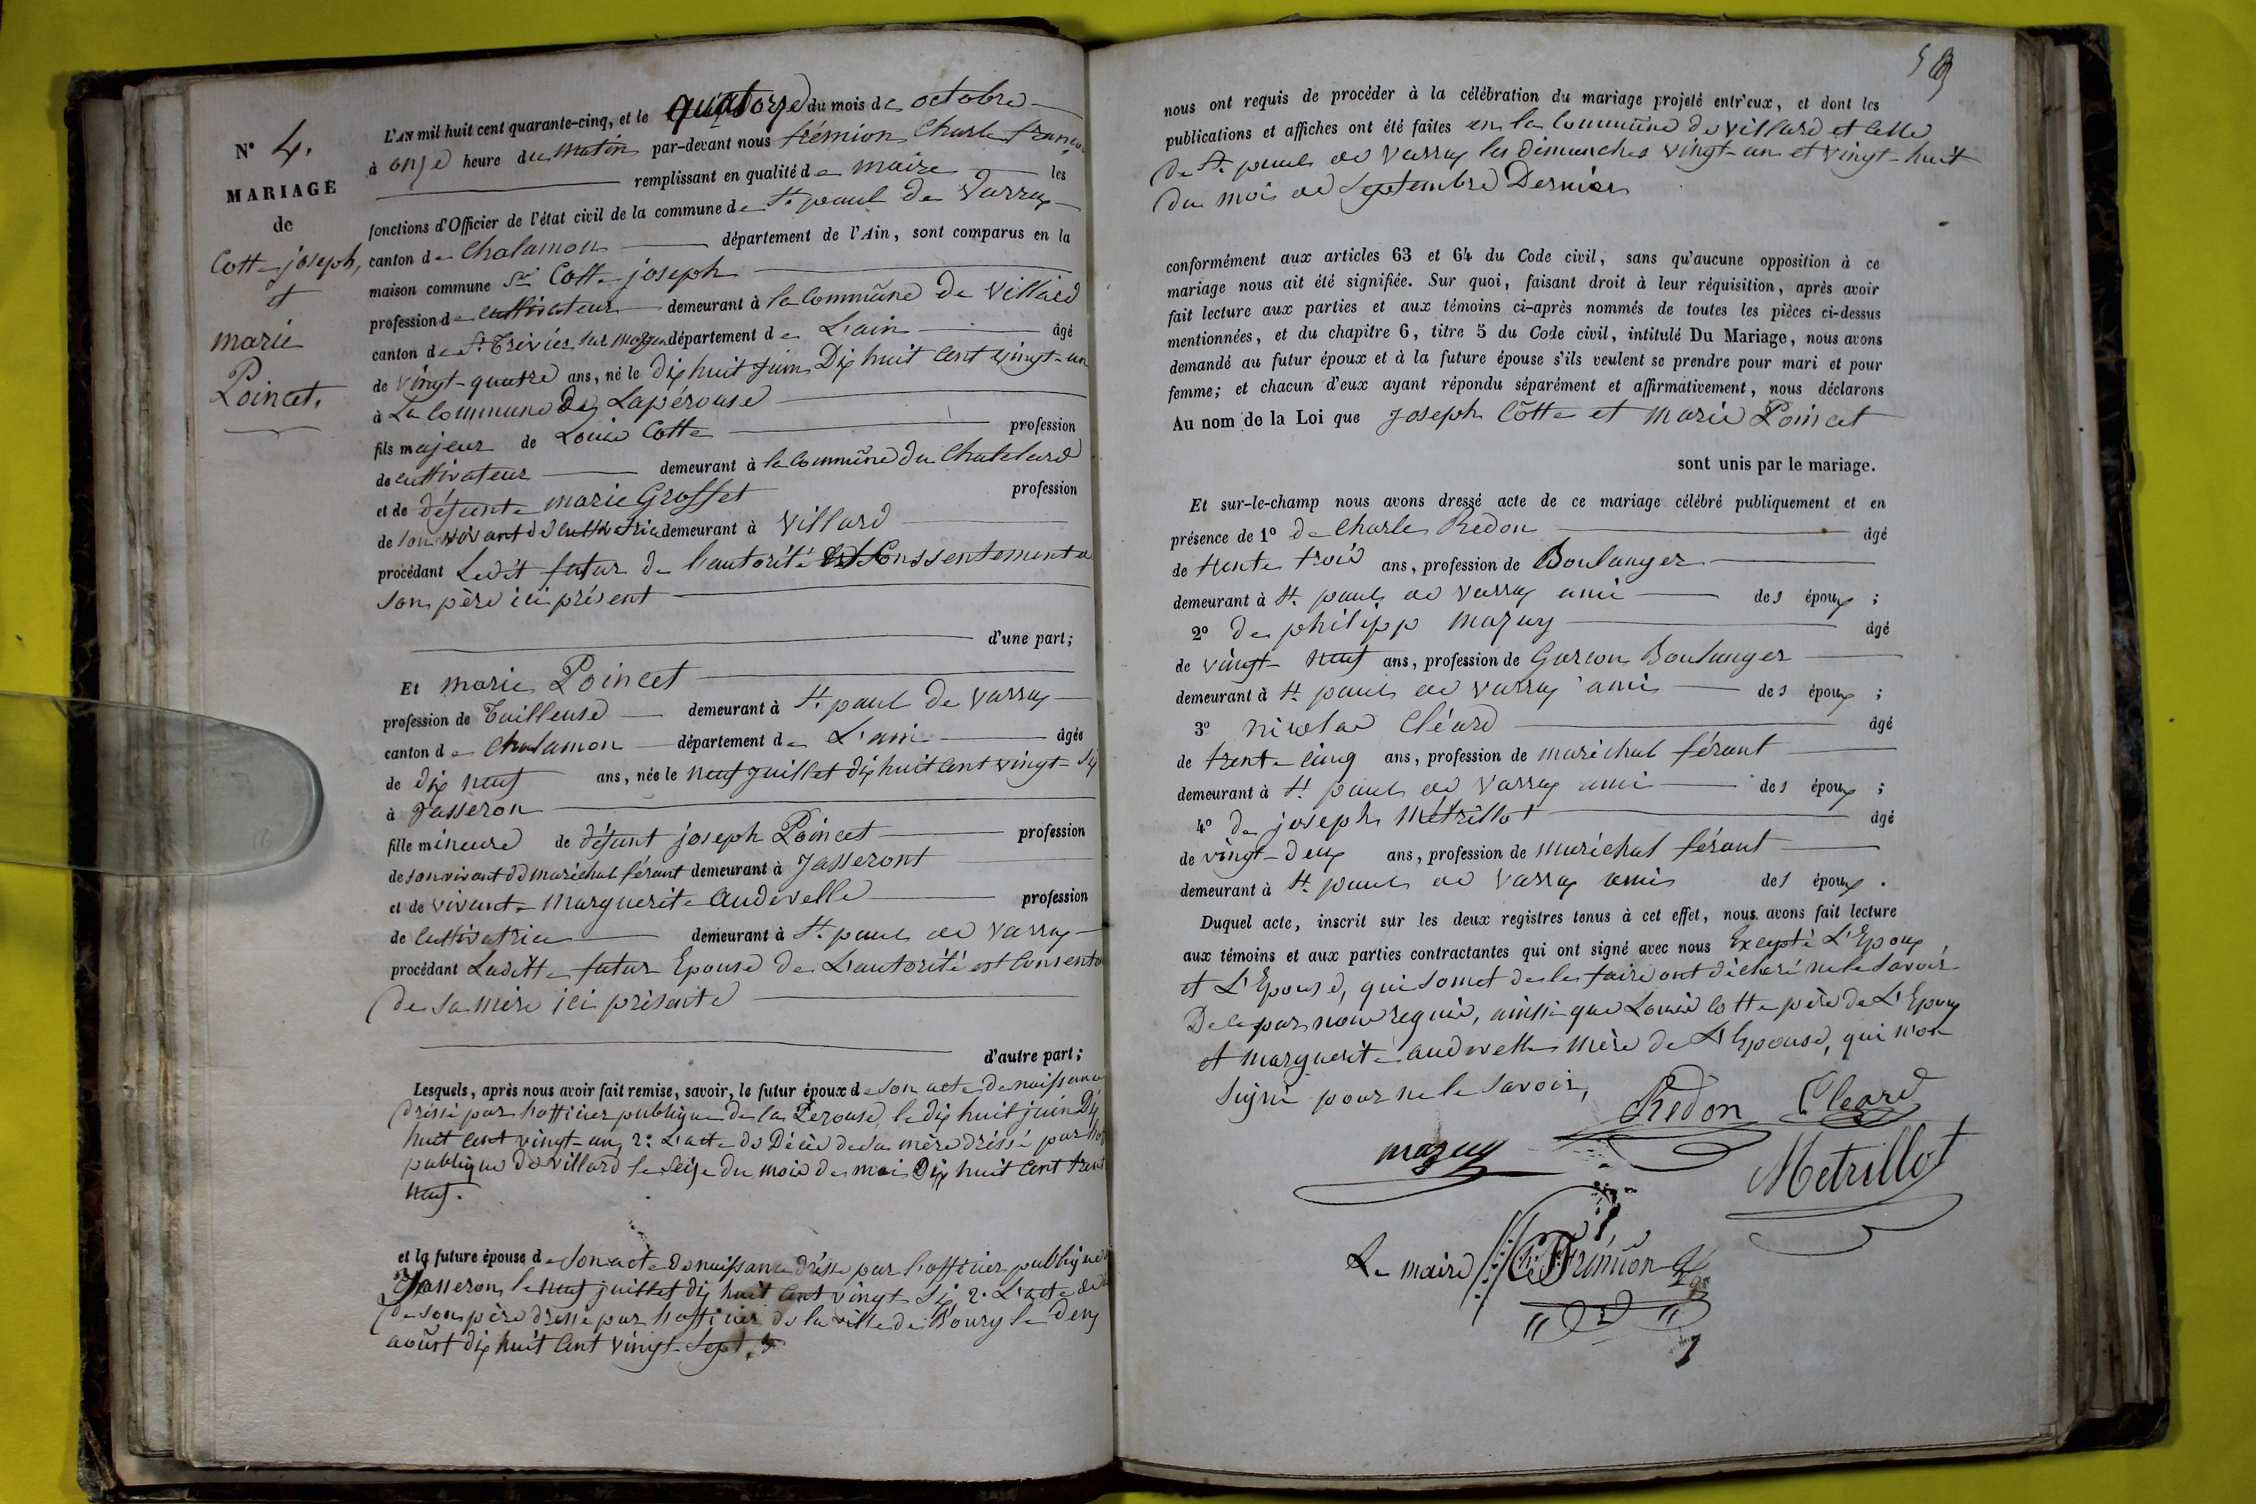 N° 4.
MARIAGE
de
Cotte joseph,
et
marie
Poincet.
L'AN mil huit cent quarante-cinq, et le quatorze du mois de octobre
à onze heure du matin par-devant nous frémion Charle françoi
remplissant en qualité de maire les
fonctions d'Officier de l'état civil de la commune de St. paul de Varray
canton de Chalamon département de l'Ain, sont comparus en la
maison commune Sr Cotte joseph
profession de cultivateur demeurant à la Commune de Villard
canton de St Trivier sur département de L'ain âgé
de vingt-quatre ans, né le dix huit juin Dix huit cent vingt-un
à La Commune de Lapérouse
fils majeur de Louis Cotte profession
de cultivateur demeurant à la Commune du Chatelard
et de défunte marie Grosset profession
de son vivant de cultivatrice demeurant à Villard
procédant Ledit futur de l'autorité et Conssentement de
son père ici présent
d'une part;
Et marie Poincet
profession de Tailleuse demeurant à St. paul de Varray
canton de Chalamon département de L'ain âgée
de dix neuf ans, née le neuf juillet dix huit cent vingt-six
à Jasseron
fille mineure de défunt joseph Poincet profession
de son vivant de maréchal férant demeurant à Jasseront
et de vivante Marguerite Audevelle profession
de Cultivatrice demeurant à St. paul de Varray
procédant Laditte futur Epouse de L'autorité est Consente
de sa mère ici présente
d'autre part;
Lesquels, après nous avoir fait remise, savoir, le futur époux de son acte de naissance
dréssé par l'officier publique de la Pérouse, le dix huit juin Dix
huit cent vingt-un, 2° L'acte de Décès de sa mère dréssé par
publique de villard le seize du mois de mai Dix huit Cent trent
neuf.
et la future épouse de son acte de naissance dréssé par l'officier publique
Jasseron, le neuf juillet dix huit Cent vingt six 2° L'acte de
de son père dressé par l'officier de la ville de Bourg le deux
août dix huit Cent vingt-sept.
nous ont requis de procéder à la célébration du mariage projeté entr'eux, et dont les
publications et affiches ont été faites en la Commune de Villard et Celle
de St. paul de Varray les dimanches vingt-un et vingt-huit
du mois de Septembre Dernier
conformément aux articles 63 et 64 du Code civil, sans qu'aucune opposition à ce
mariage nous ait été signifiée. Sur quoi, faisant droit à leur réquisition, après avoir
fait lecture aux parties et aux témoins ci-après nommés de toutes les pièces ci-dessus
mentionnées, et du chapitre 6, titre 5 du Code civil, intitulé Du Mariage, nous avons
demandé au futur époux et à la future épouse s'ils veulent se prendre pour mari et pour
femme; et chacun d'eux ayant répondu séparément et affirmativement, nous déclarons
Au nom de la Loi que Joseph Côtte et Marie Poincet
sont unis par le mariage.
Et sur-le-champ nous avons dressé acte de ce mariage célébré publiquement et en
présence de 1° de Charle Redon âgé
de trente trois ans, profession de Boulanger
demeurant à St. paul de Varray ami des époux;
2° de philipp Mazuy âgé
de vingt-neuf ans, profession de Garcon Boulanger
demeurant à St. paul de Varray ami des époux;
3° nicolas Cléard âgé
de trente cinq ans, profession de maréchal férant
demeurant à St. paul de Varray ami des époux;
4° de joseph Métrillot âgé
de vingt-deux ans, profession de maréchal férant
demeurant à St. paul de Varray amis des époux.
Duquel acte, inscrit sur les deux registres tenus à cet effet, nous avons fait lecture
aux témoins et aux parties contractantes qui ont signé avec nous Excepté L'Epoux
et L'Epouse, qui de le faire ont décleré ne le savoir
De ce par nous requis, ainsi que Louis Cotte père de L'Epoux
et marguerite audevelle mère de L'Epouse, qui n'on
signé pour ne le savoir,
Redon Cleard
mazuy
Metrillot
Le maire Ch. Frémion